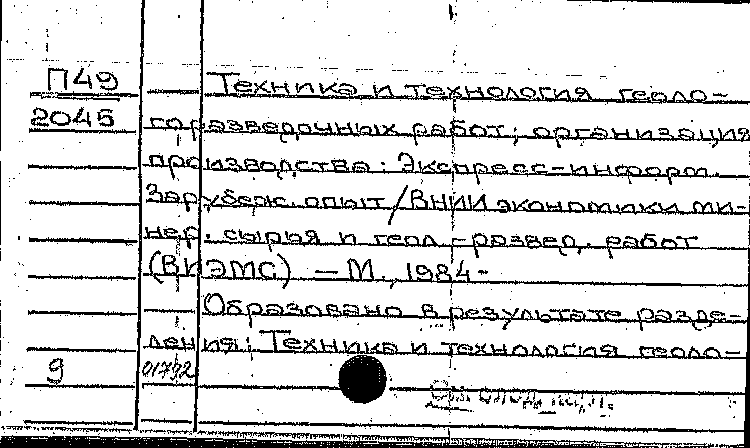 П49 Техника и технология геоло-
2045 горазведочных работ; организация
производства: Экспресс-информ.
Заруберж. опыт / ВНИИ экономики ми-
нер. сырья и геол.-развед. работ
(ВИЭМС) — М., 1984-
Образовано в результате разде-
ления: Техника и технология геоло-
9 01792